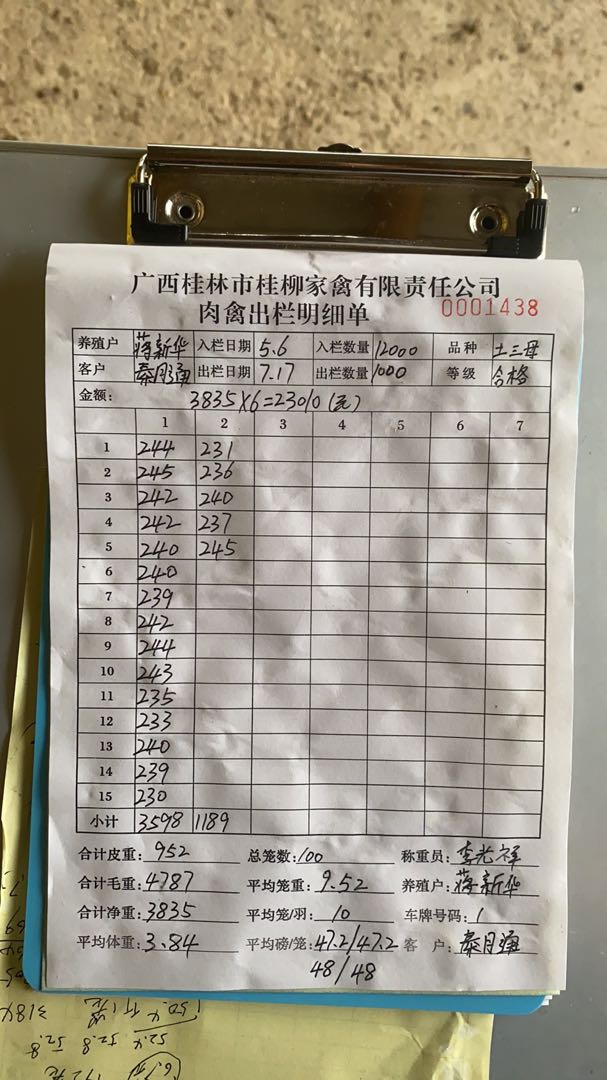 广西桂林市桂柳家禽有限责任公司
肉禽出栏明细单 0001438
养殖户 蒋新华 入栏日期 5.6 入栏数量 12000 品种 土三母
客户 秦月通 出栏日期 7.17 出栏数量 1000 等级 合格
金额: 3835×6=23010(元)
1 2 3 4 5 6 7
1 244 231
2 245 236
3 242 240
4 242 237
5 240 245
6 240
7 239
8 242
9 244
10 243
11 235
12 233
13 240
14 239
15 230
小计 3598 1189
合计皮重: 952 总笼数: 100 称重员: 李光祥
合计毛重: 4787 平均笼重: 9.52 养殖户: 蒋新华
合计净重: 3835 平均笼/羽: 10 车牌号码: 1
平均体重: 3.84 平均磅/笼: 47.2/47.2 客户: 秦月通
48/48
3184
52.4 52.8 52.8